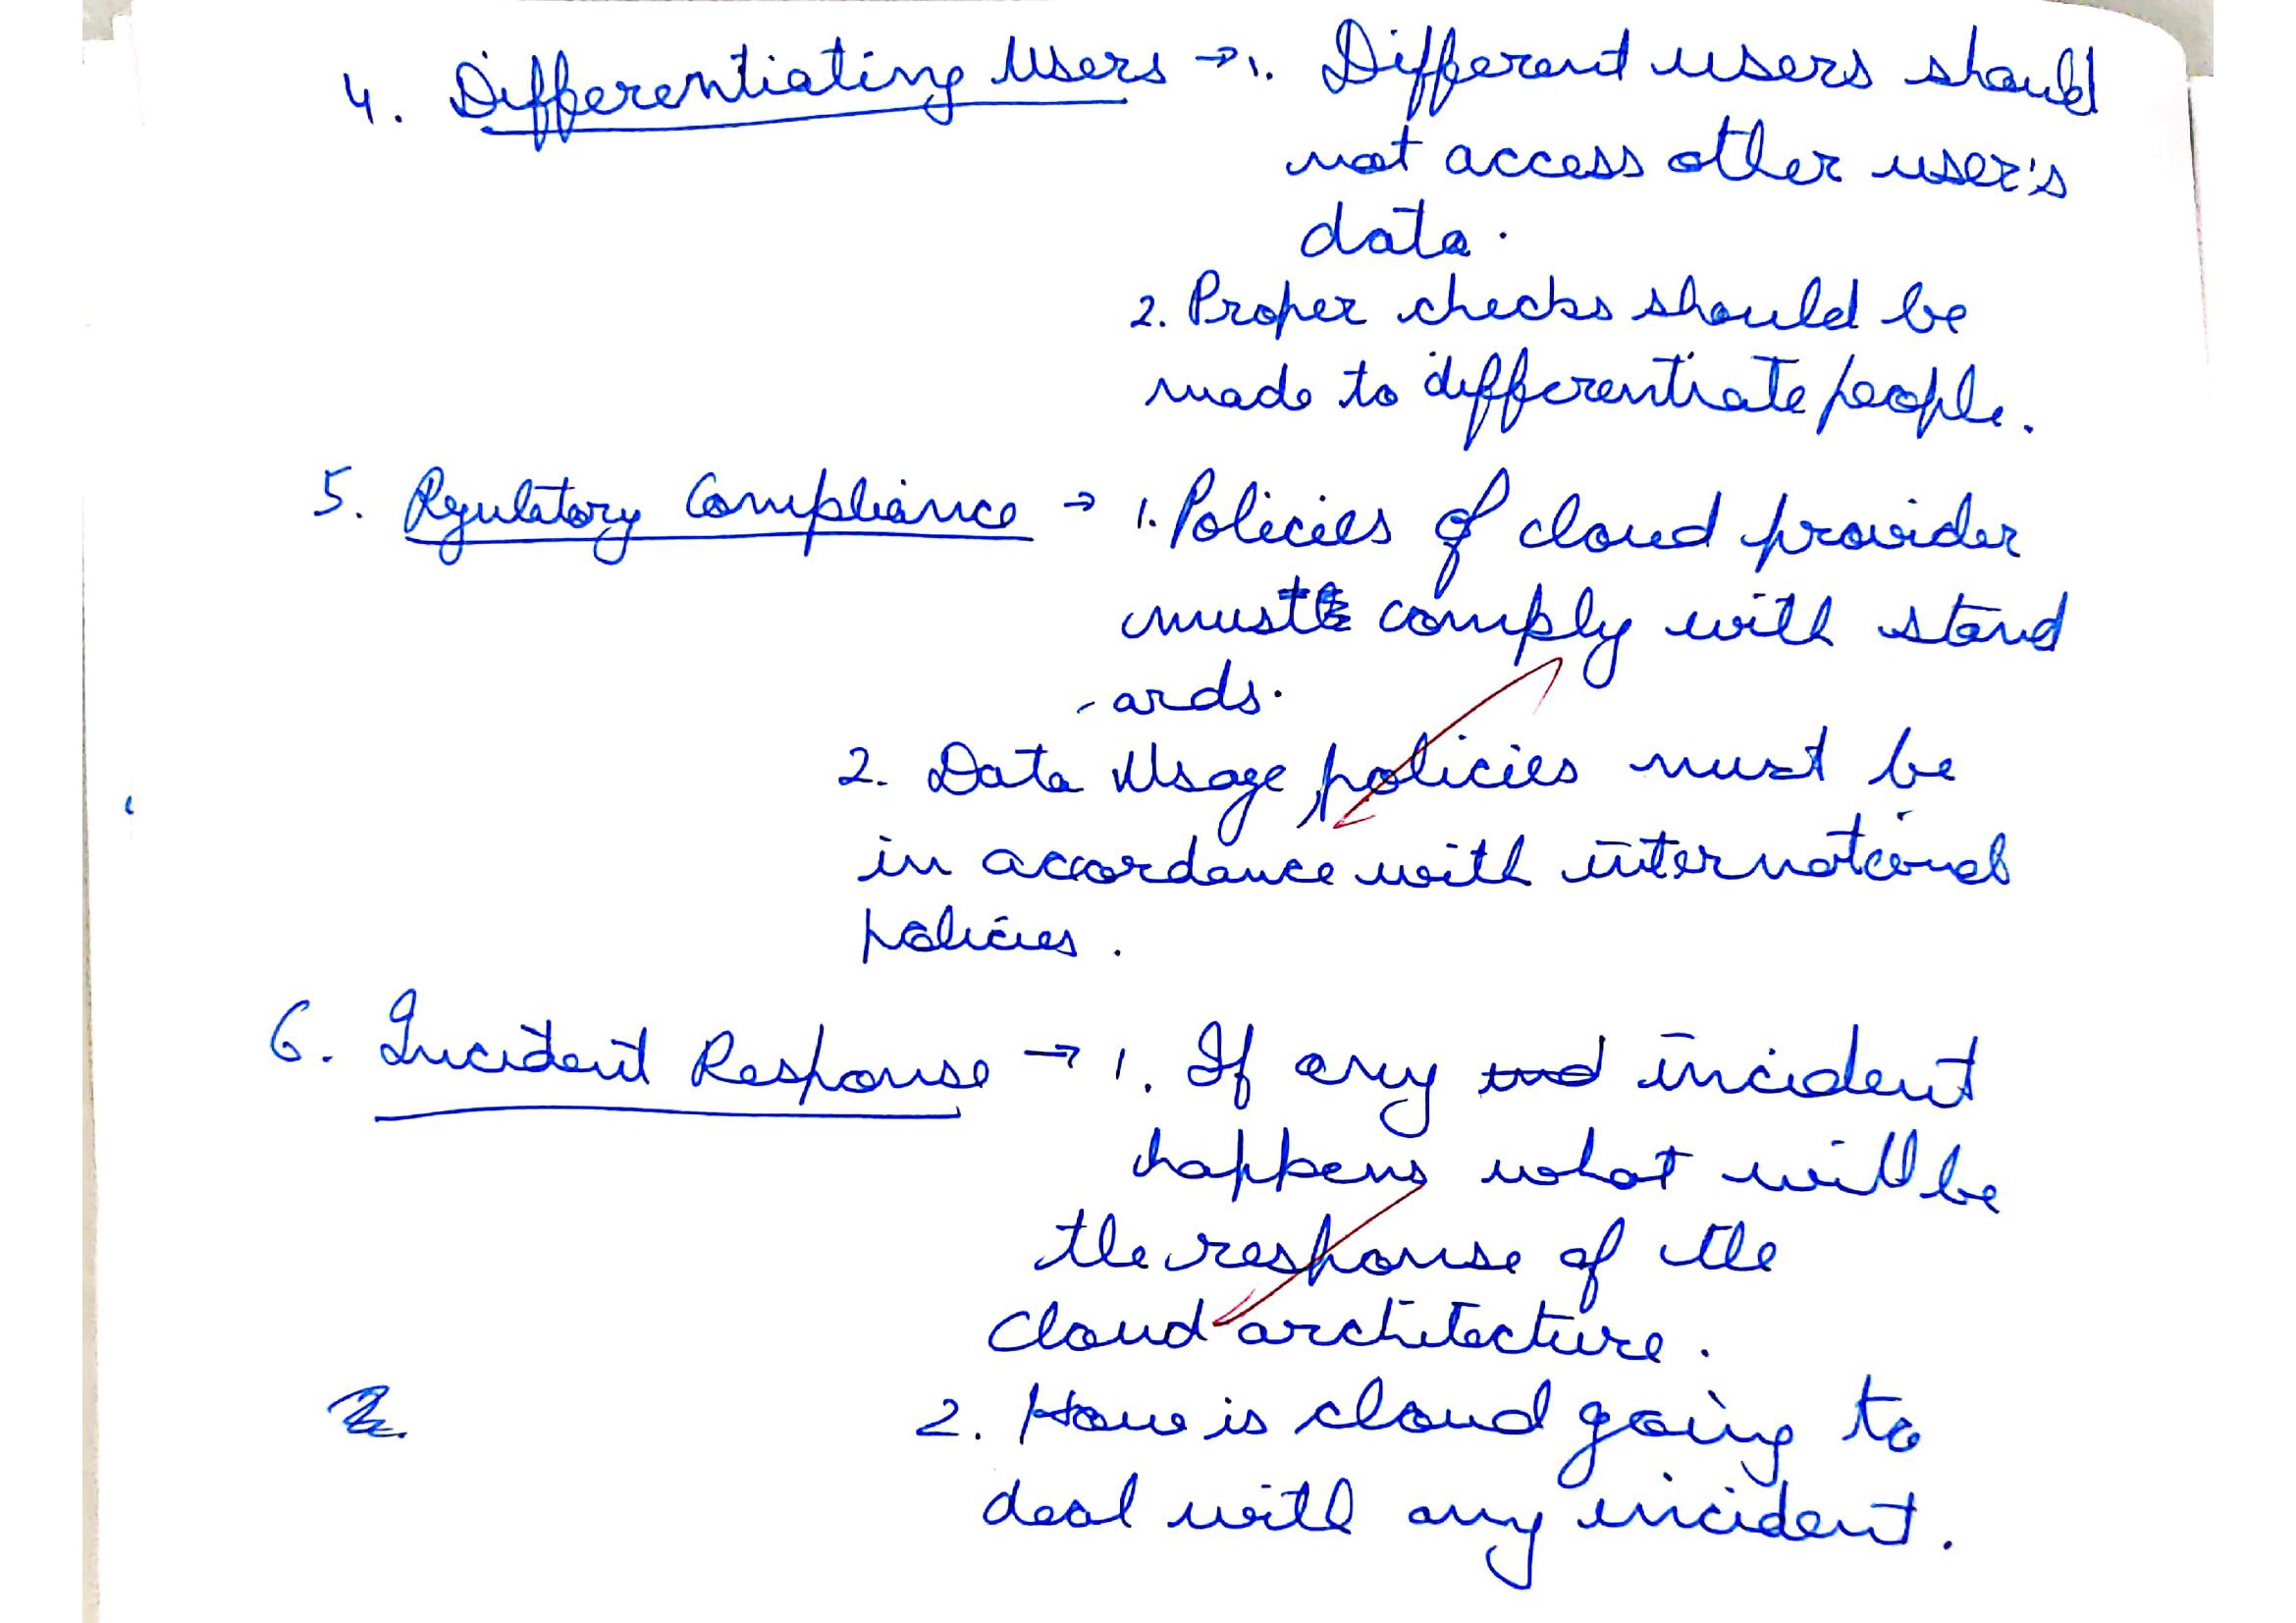 4. Differentiating Users → 1. Different users should
not access other user's
data.
2. Proper checks should be
made to differentiate people.
5. Regulatory Compliance → 1. Policies of cloud provider
must comply with stand
-ards.
2. Data Usage policies must be
in accordance with international
policies.
6. Incident Response → 1. If any incident
happens what will be
the response of the
cloud architecture.
2. How is cloud going to
deal with any incident.